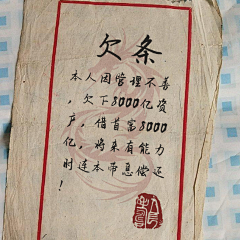 欠条
本人因管理不善
，欠下8000亿资
产，借首富8000
亿，将来有能力
时连本带息偿还
！